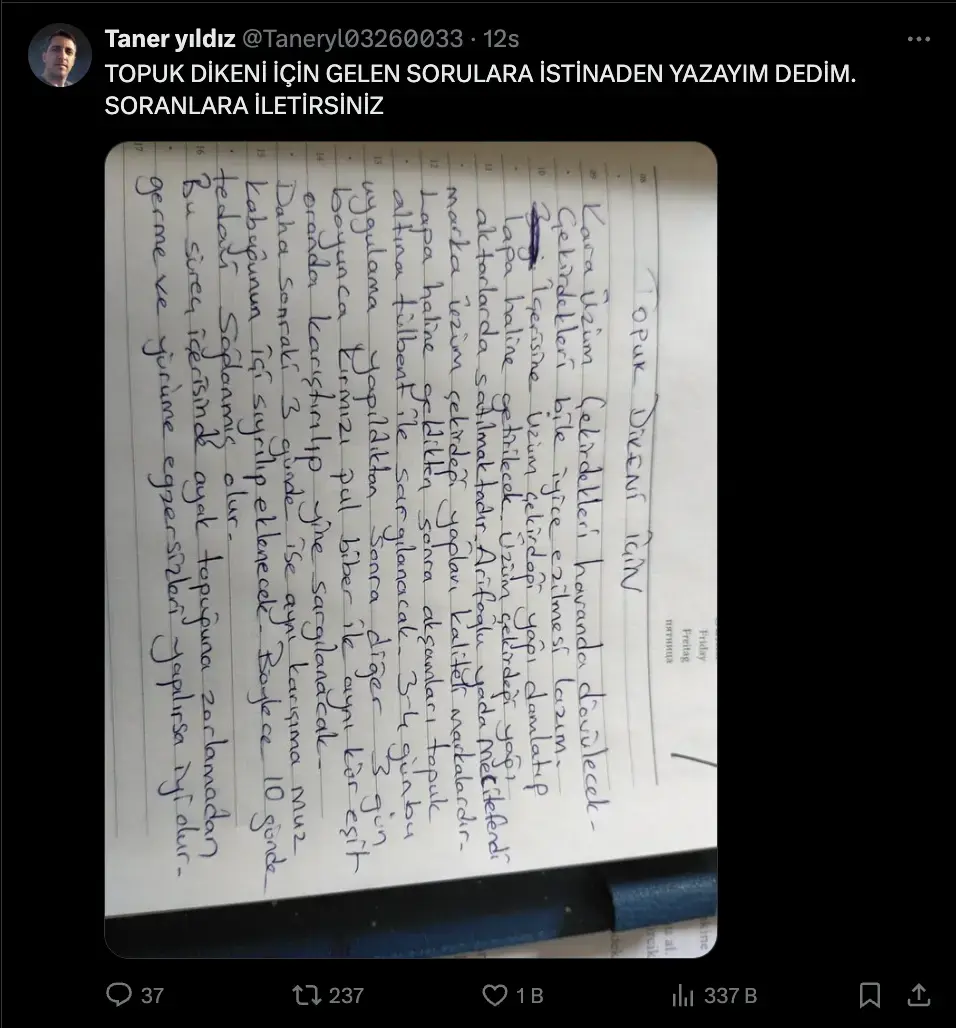 Taner yıldız @Taneryl03260033 · 12s
TOPUK DİKENİ İÇİN GELEN SORULARA İSTİNADEN YAZAYIM DEDİM.
SORANLARA İLETİRSİNİZ
Friday
Freitag
пятница
TOPUK DİKENİ İÇİN
08
09
10
11
12
13
14
15
16
17
Kara üzüm Çekirdekleri havanda dövülecek-
Çekirdekleri bile iyice ezilmesi lazım-
İçerisine üzüm çekirdeği yağı damlatıp
Lapa haline getirilecek. Üzüm çekirdeği yağı
aktarlarda satılmaktadır. Arifoğlu yada Mecitefendi
marka üzüm çekirdeği yağları kaliteli markalardır-
Lapa haline geldikten sonra akşamları topuk
altına tülbent ile sargılanacak- 3-4 gün bu
uygulama yapıldıktan sonra diğer 3 gün
boyunca kırmızı pul biber ile aynı kür eşit
oranda karıştırılıp yine sargılanacak-
Daha sonraki 3 günde ise aynı karışıma muz
kabuğunun içi sıyrılıp eklenecek- Böylece 10 günde
tedavi sağlanmış olur-
Bu süreç içerisinde ayak topuğuna zorlamadan
germe ve yürüme egzersizleri yapılırsa iyi olur-
37
237
1 B
337 B